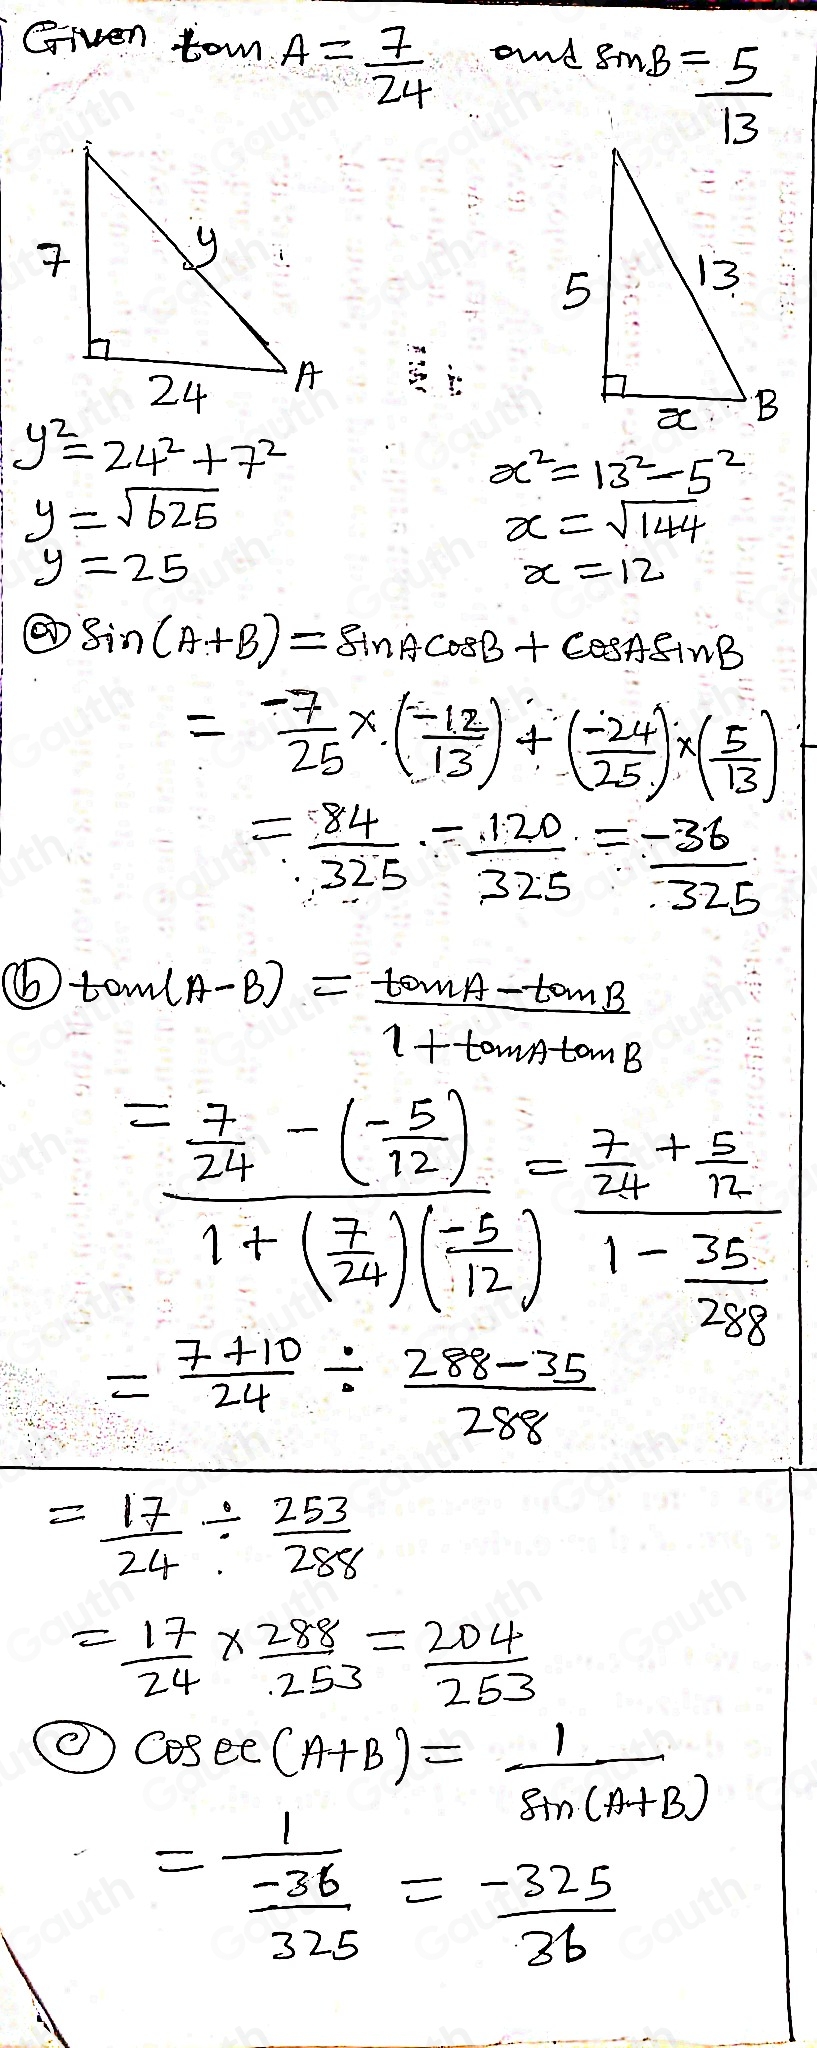 Given tan A = 7/24 and sin B = 5/13
7 y 24 A
5 13 x B
y² = 24² + 7²
x² = 13² - 5²
y = √625
x = √144
y = 25
x = 12
(a) Sin(A+B) = SinACosB + CosASinB
= -7/25 × (-12/13) + (-24/25) × (5/13)
= 84/325 - 120/325 = -36/325
(b) tan(A-B) = (tanA - tanB)/(1 + tanAtanB)
= (7/24 - (-5/12))/(1 + (7/24)(-5/12)) = (7/24 + 5/12)/(1 - 35/288)
= (7+10)/24 ÷ (288-35)/288
= 17/24 ÷ 253/288
= 17/24 × 288/253 = 204/253
(c) Cosec(A+B) = 1/Sin(A+B)
= 1/(-36/325) = -325/36
Gauth